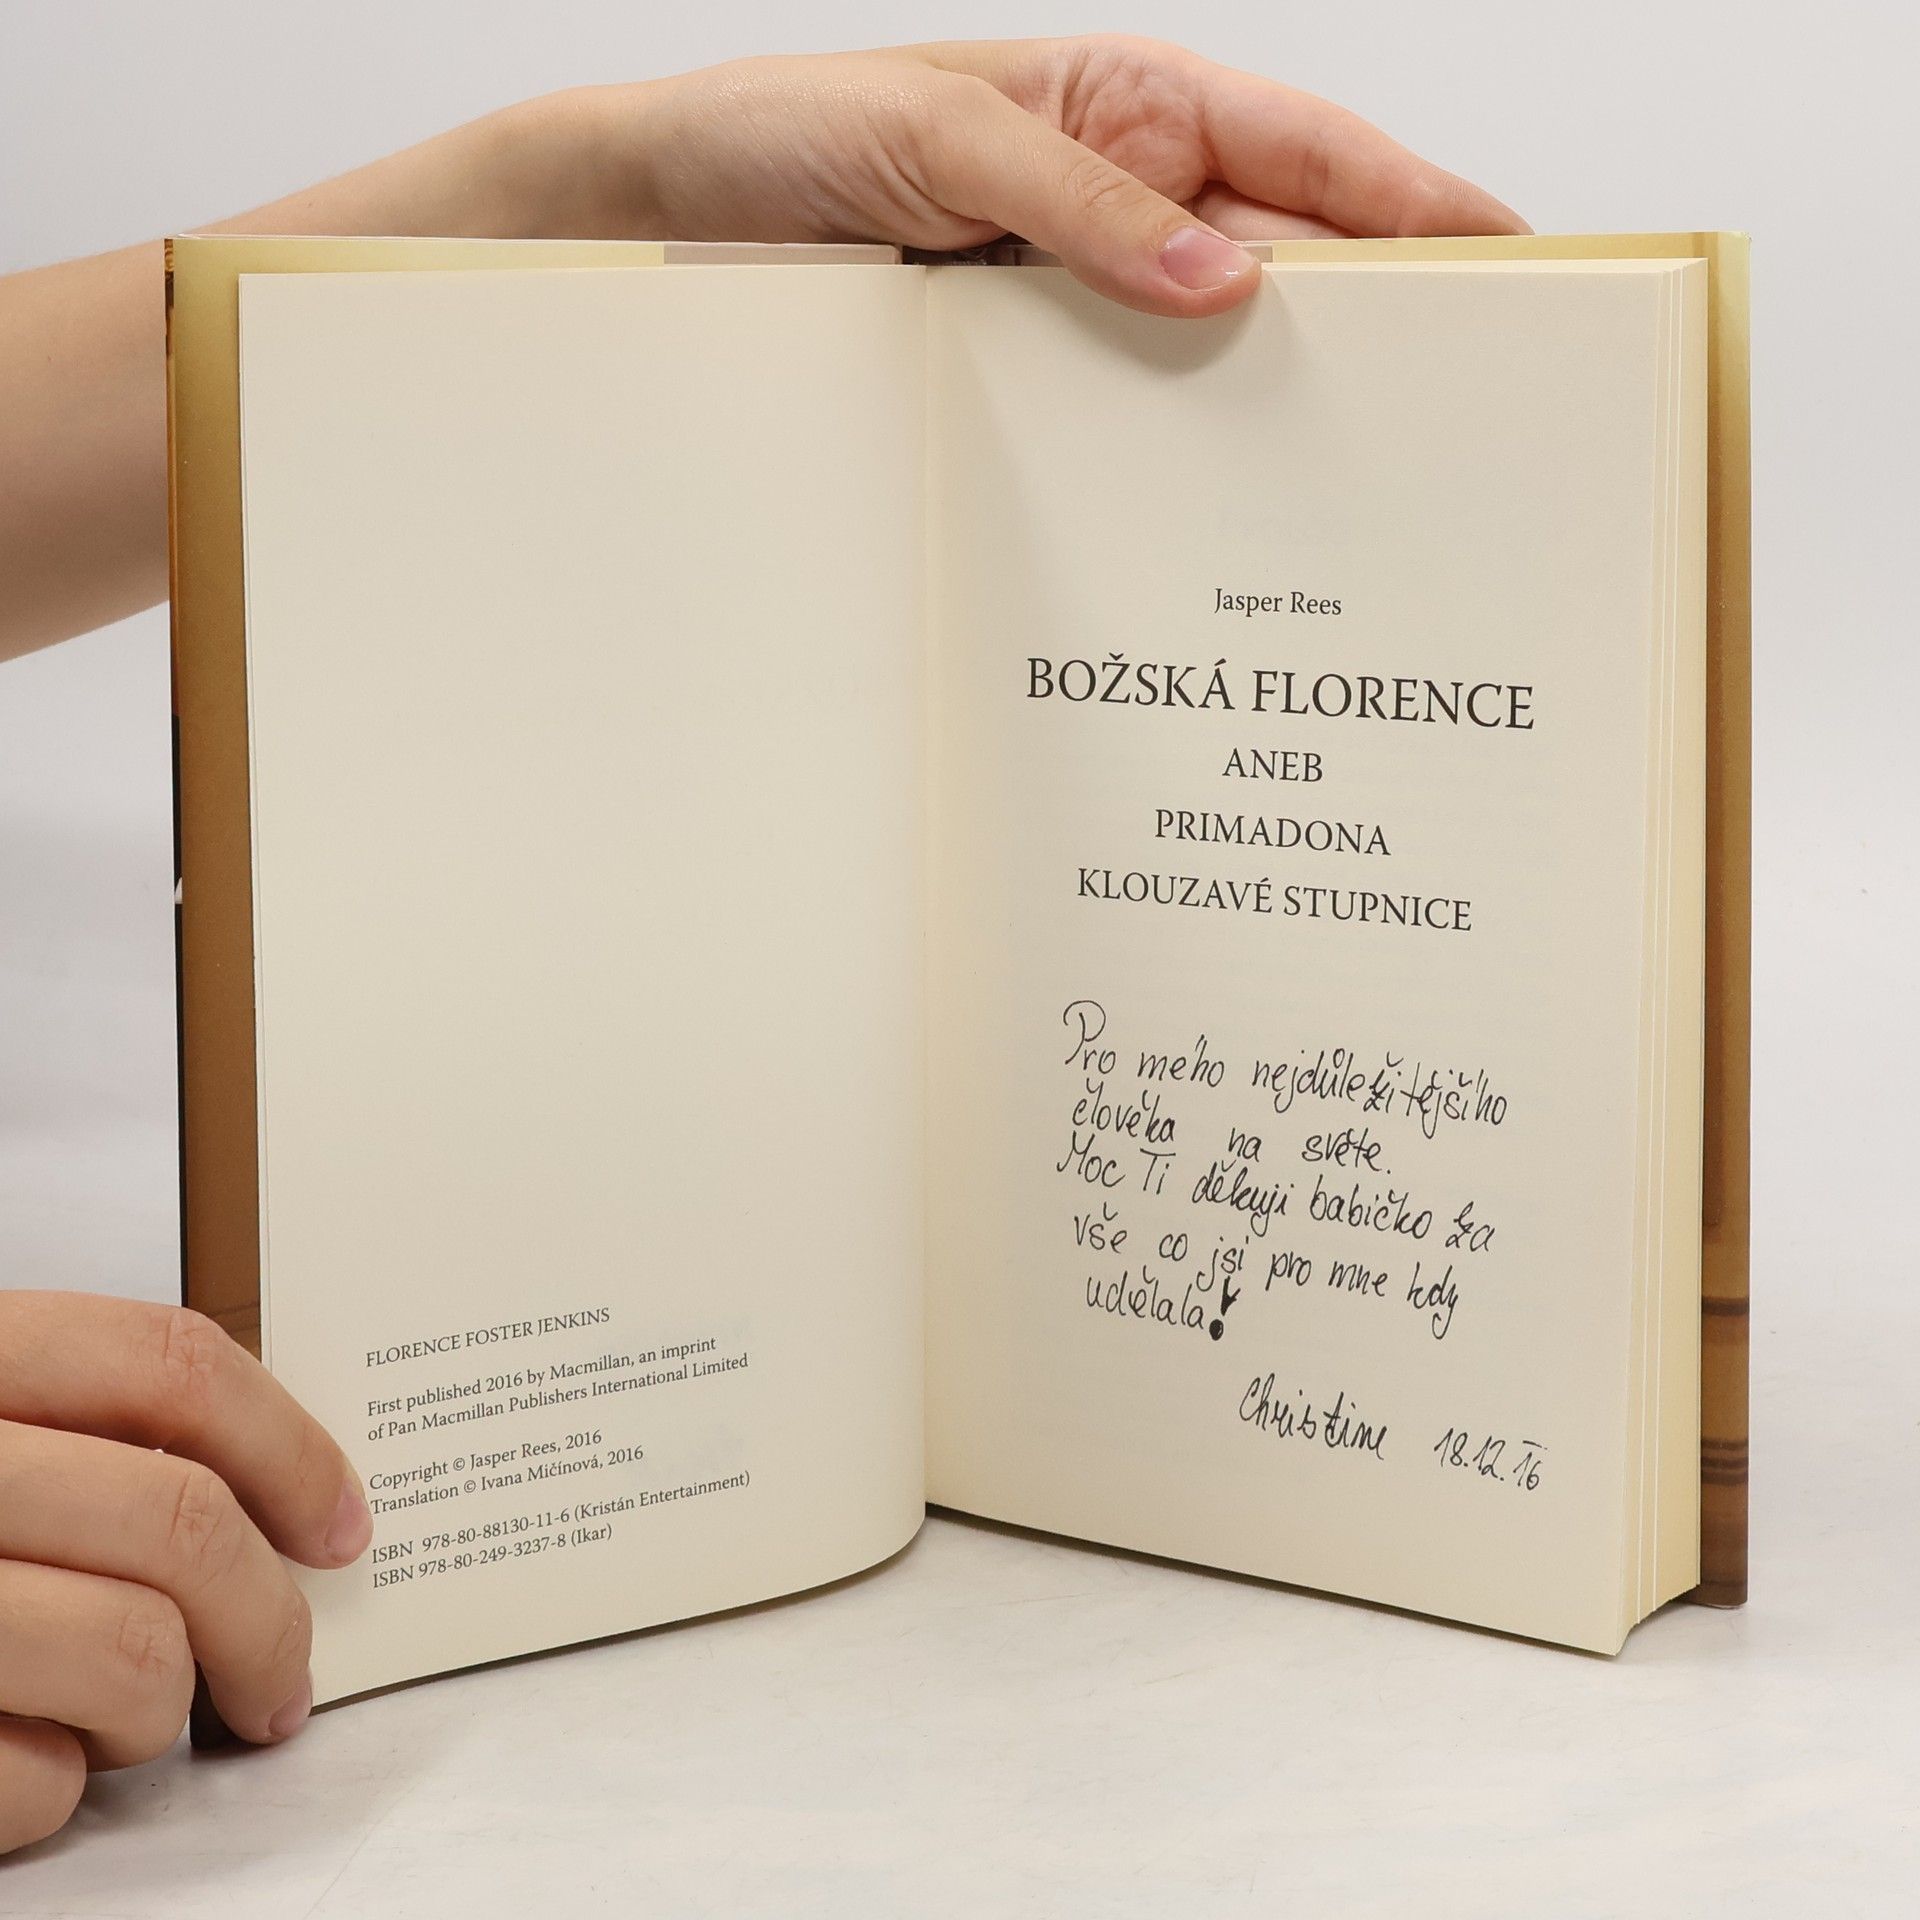 FLORENCE FOSTER JENKINS
First published 2016 by Macmillan, an imprint
of Pan Macmillan Publishers International Limited
Copyright © Jasper Rees, 2016
Translation © Ivana Mičínová, 2016
ISBN 978-80-88130-11-6 (Kristán Entertainment)
ISBN 978-80-249-3237-8 (Ikar)
Jasper Rees
BOŽSKÁ FLORENCE
ANEB
PRIMADONA
KLOUZAVÉ STUPNICE
Pro mého nejdůležitějšího
člověka na světe.
Moc Ti děkuji babičko za
vše co jsi pro mne kdy
udělala!
Christine 18.12.16